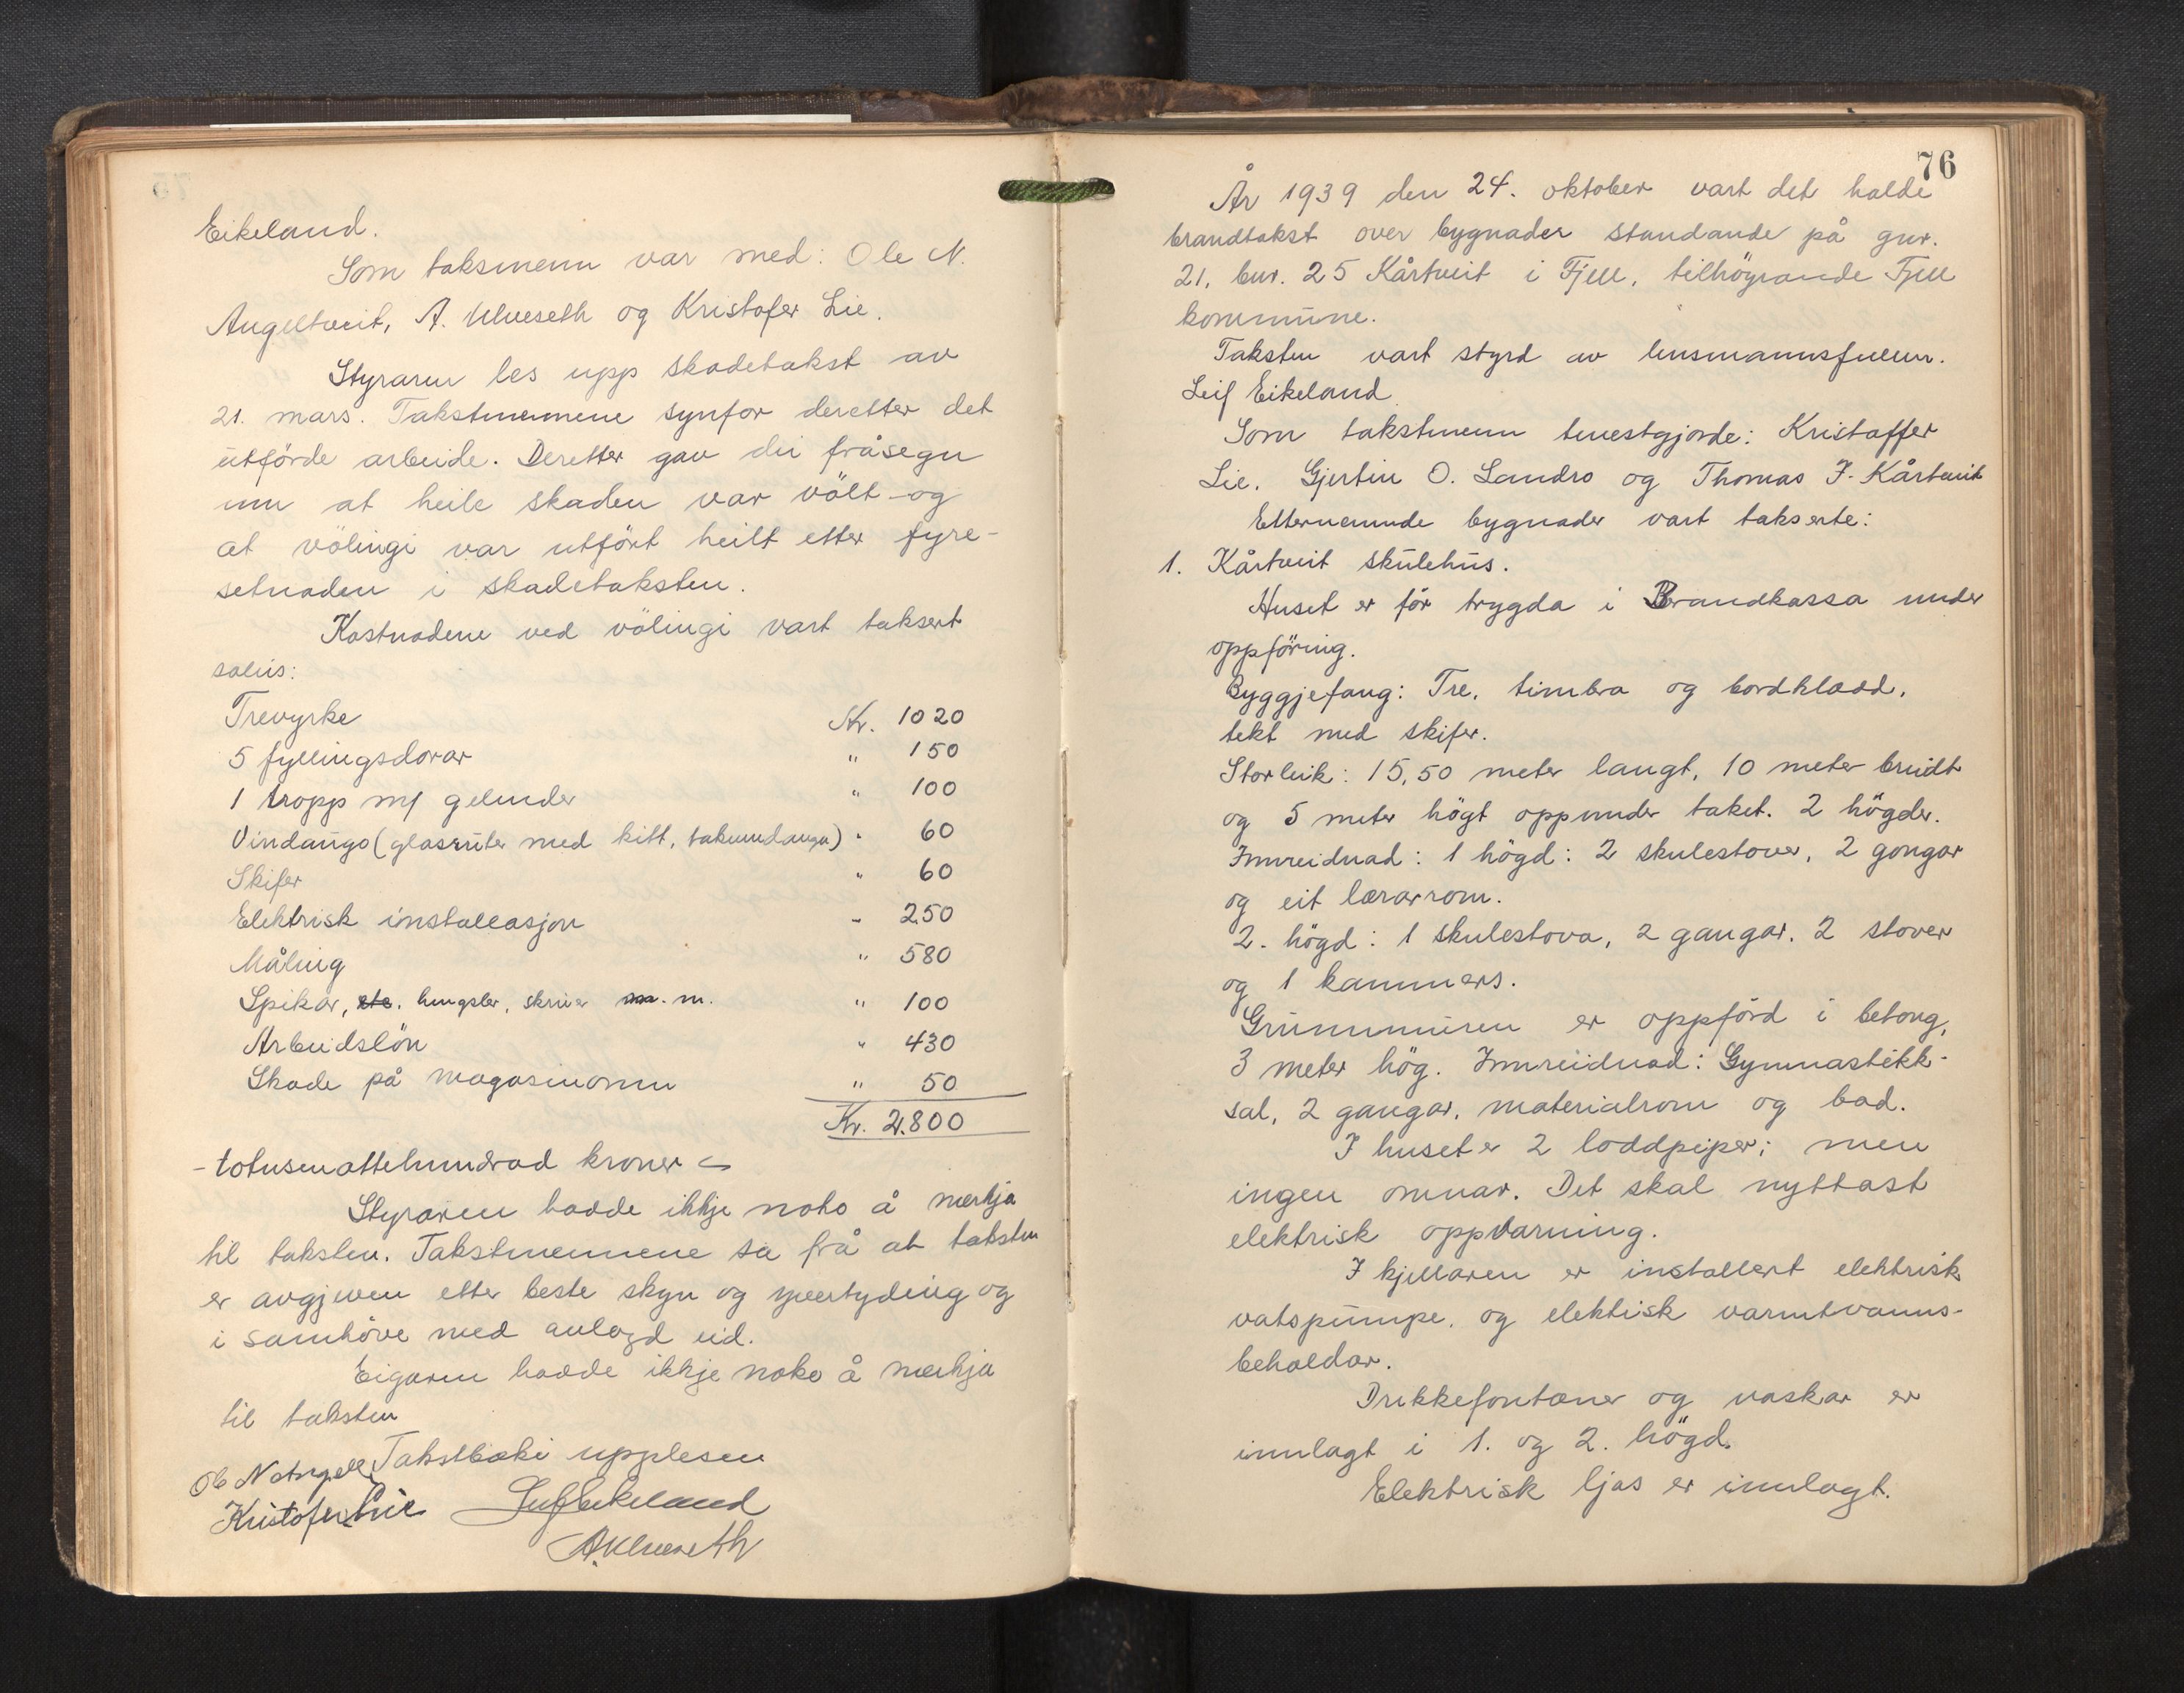 Eikeland.
Som taksmenn var med: Ole N.
Angeltveit, A. Ulveseth og Kristofer Lie.
Styraren les upp skadetakst av
21. mars. Takstmennene synfor deretter det
utförde arbeide. Deretter gav dei fråsegn
um at heile skaden var völt og
at völingi var utfört heilt etter fyre-
setnaden i skadetaksten.
Kostnadene ved völingi vart taksert
soleis:
Trevyrke Kr. 1020
5 fyllingsdorar " 150
1 tropp m/ gelender " 100
Vindaugo (glasruter med kitt, takvindauga) " 60
Skifer " 60
Elektrisk installasjon " 250
Måling " 580
Spikar, etc. hengsler, skruer m. m. " 100
Arbeidslön " 430
Skade på magasinomn " 50
Kr. 2.800
- totusenattehundrad kroner -
Styraren hadde ikkje noko å merkja
til taksten. Takstmennene sa frå at taksten
er avgjeven etter beste skyn og yvertyding og
i samhöve med avlagd eid.
Eigaren hadde ikkje noko å merkja
til taksten
Takstboki upplesen
Ole N Angelt
Kristofer Lie Leif Eikeland
A. Ulveseth
76
År 1939 den 24. oktober vart det halde
brandtakst over bygnader standande på gnr.
21, bnr. 25 Kårtveit i Fjell, tilhöyrande Fjell
kommune.
Taksten vart styrd av lensmannsfullm.
Leif Eikeland
Som takstmenn tenestgjorde: Kristoffer
Lie, Gjertin O. Landro og Thomas J. Kårtveit
Etternemnde bygnader vart takserte:
1. Kårtveit skulehus.
Huset er för trygda i Brandkassa under
oppföring.
Byggjefang: Tre, timbra og bordkladd,
tekt med skifer.
Storleik: 15,50 meter langt, 10 meter breidt
og 5 meter högt oppunder taket. 2 högder.
Innreidnad: 1 högd: 2 skulestover, 2 gongar
og eit lærarrom.
2. högd: 1 skulestova, 2 gangar, 2 stover
og 1 kammers.
Grunnmuren er oppförd i betong,
3 meter hög. Innreidnad: Gymnastikk-
sal, 2 gangar, materialrom og bad.
I huset er 2 loddpiper; men
ingen omnar. Det skal nyttast
elektrisk oppvarming.
I kjellaren er installert elektrisk
vatspumpe, og elektisk varmtvanns-
behaldar.
Drikkefontener og vaskar er
innlagt i 1. og 2. högd.
Elektrisk ljos er innlagt.